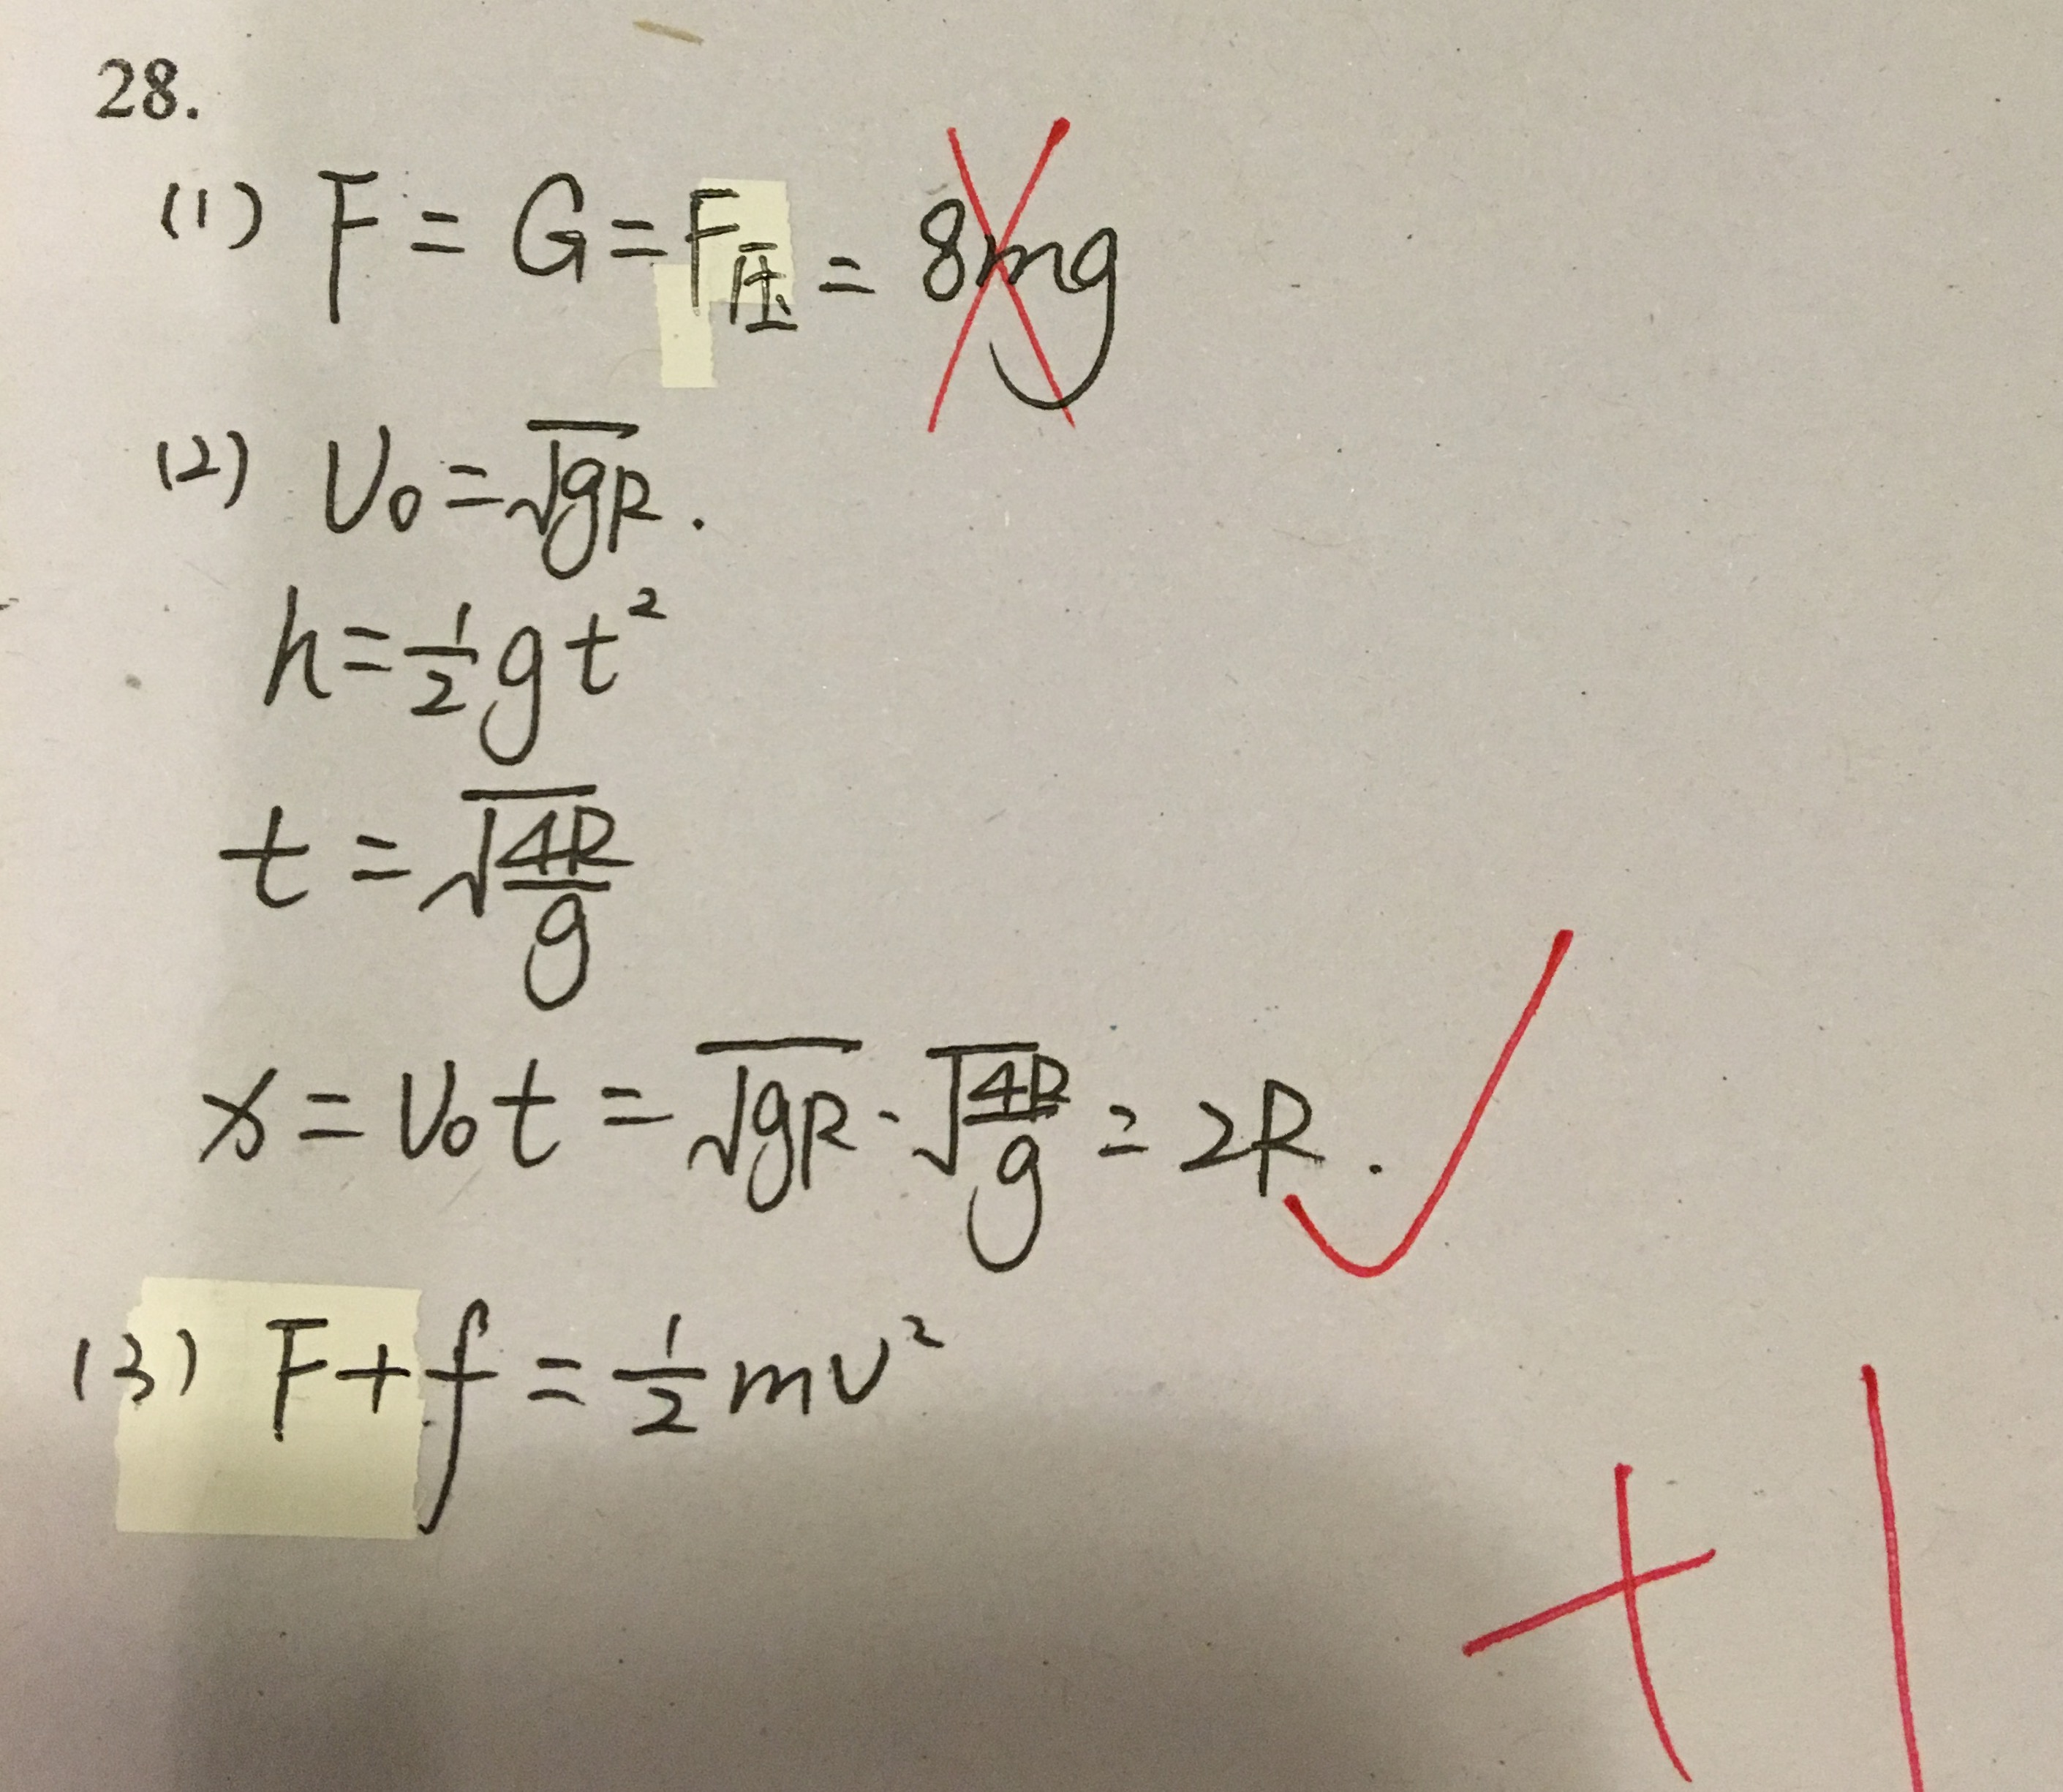 28.
(1) F = G = F压 = 8mg
(2) v₀ = √gR.
h = ½gt²
t = √(4R/g)
x = v₀t = √gR · √(4R/g) = 2R.
(3) F + f = ½mv²
+1